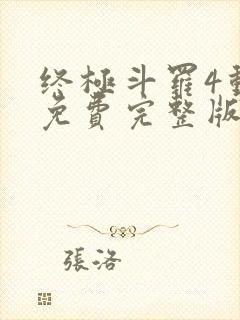 终極斗羅4動
免費完整版
張洛